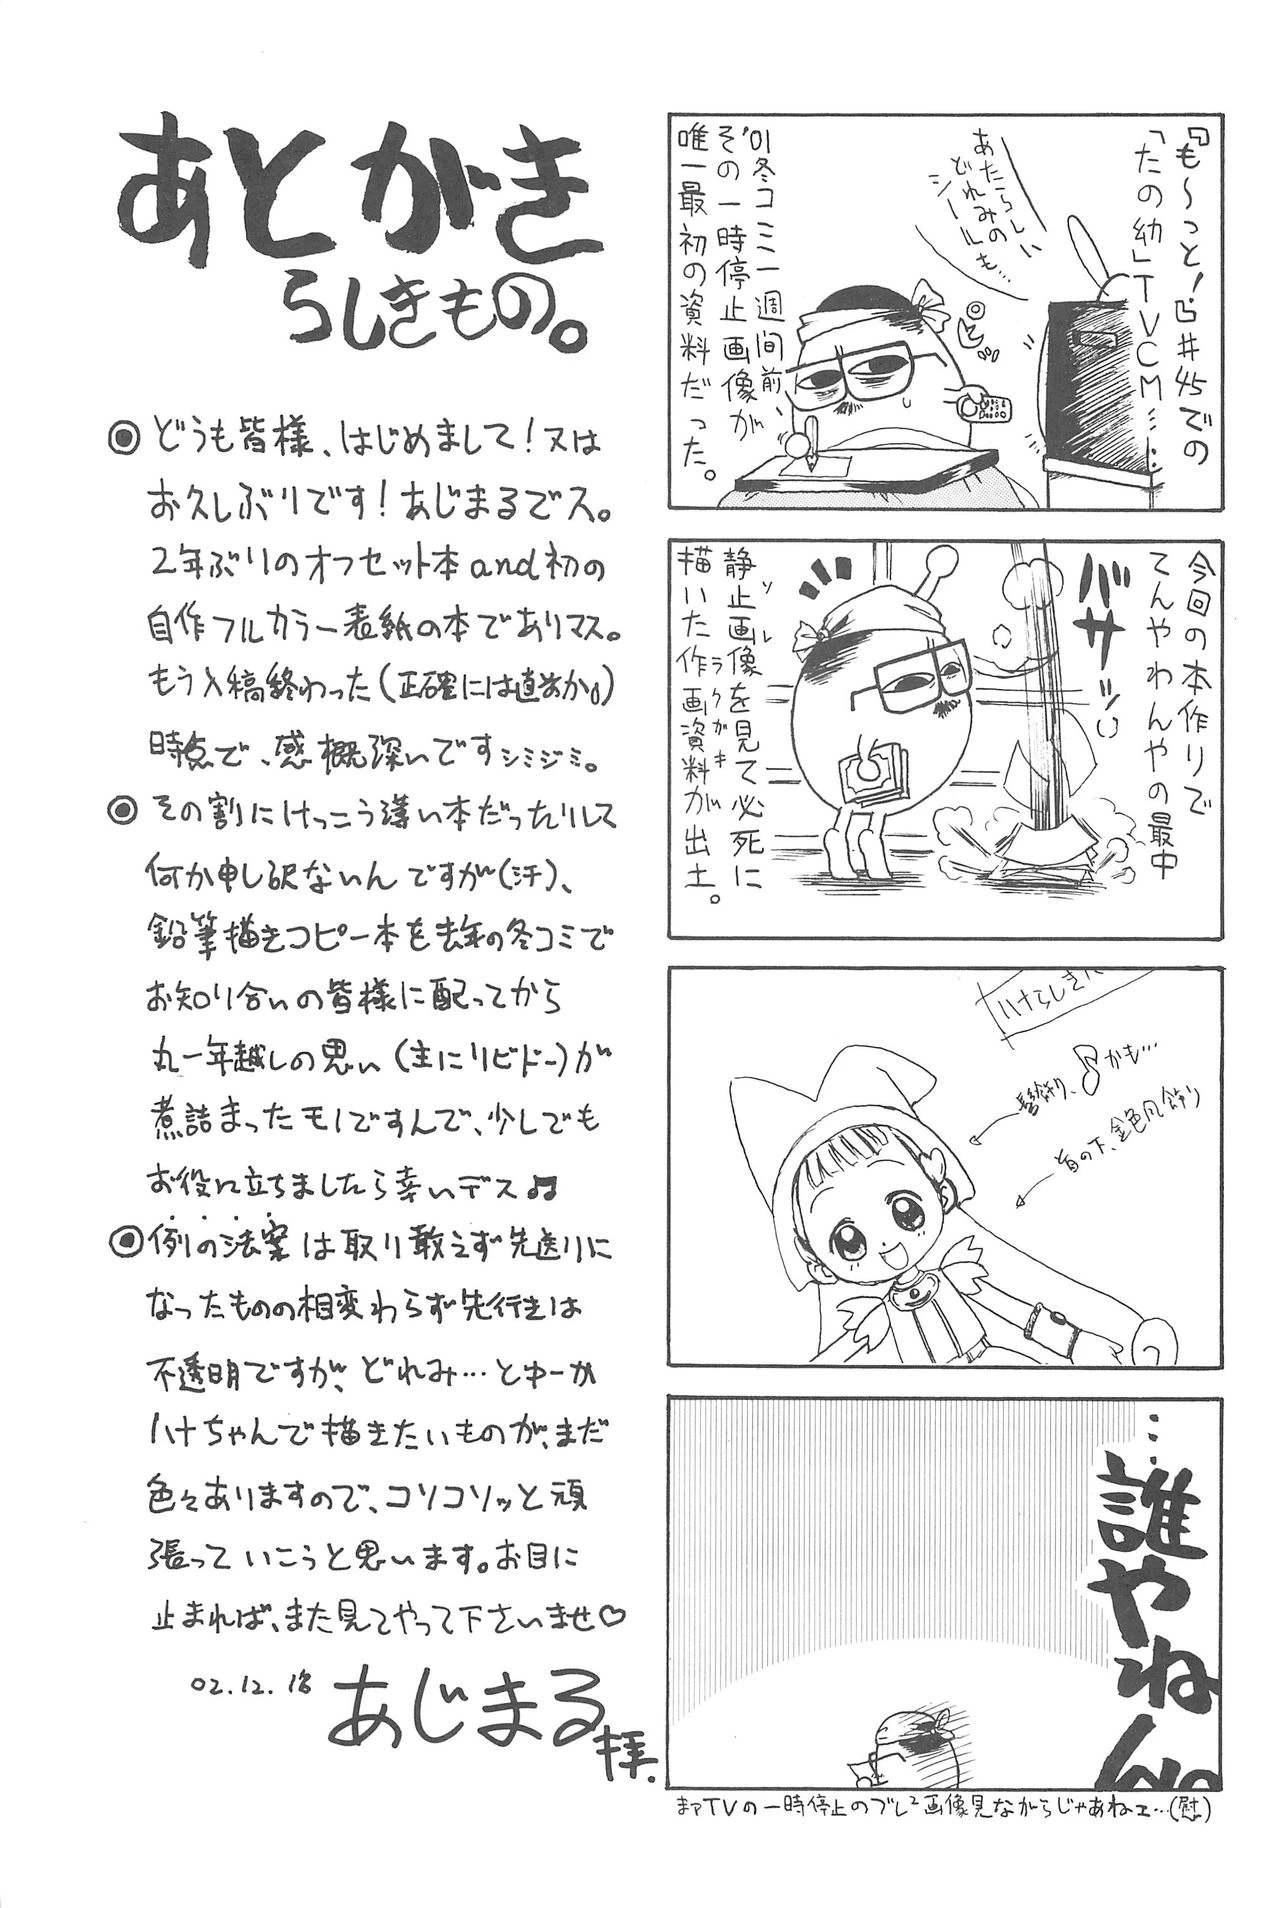 あとがき
らしきもの。
◉どうも皆様、はじめまして！又は
お久しぶりです！あじまるでス。
2年ぶりのオフセット本and初の
自作フルカラー表紙の本でありマス。
もう入稿終わった(正確には直前か。)
時点で、感慨深いですシミジミ。
◉その割にけっこう薄い本だったりして
何か申し訳ないんですが(汗)、
鉛筆描きコピー本を去年の冬コミで
お知り合いの皆様に配ってから
丸一年越しの思い(主にリビドー)が
煮詰まったモノですんで、少しでも
お役に立ちましたら幸いデス♫
◉例の法案は取り敢えず先送りに
なったものの相変わらず先行きは
不透明ですが、どれみ…とゆーか
ハナちゃんで描きたいものが、まだ
色々ありますので、コソコソッと頑
張っていこうと思います。お目に
止まれば、また見てやって下さいませ♡
02.12.18
あじまる
拝.
『も〜っと！』#45での
「たの幼」TVCM……
あたらしい
どれみの
シールも…
'01冬コミ一週間前、
その一時停止画像が
唯一最初の資料だった。
今回の本作りで
てんやわんやの最中
バサッ
静止画像を見て必死に
描いた作画資料が出土。
ソレ
ラクガキ
ハナらしき
髪飾り、♪かも…
首の下、金色凡飾り
…誰やねん。
まァTVの一時停止のブレ²画像見ながらじゃあねェ…(慰)